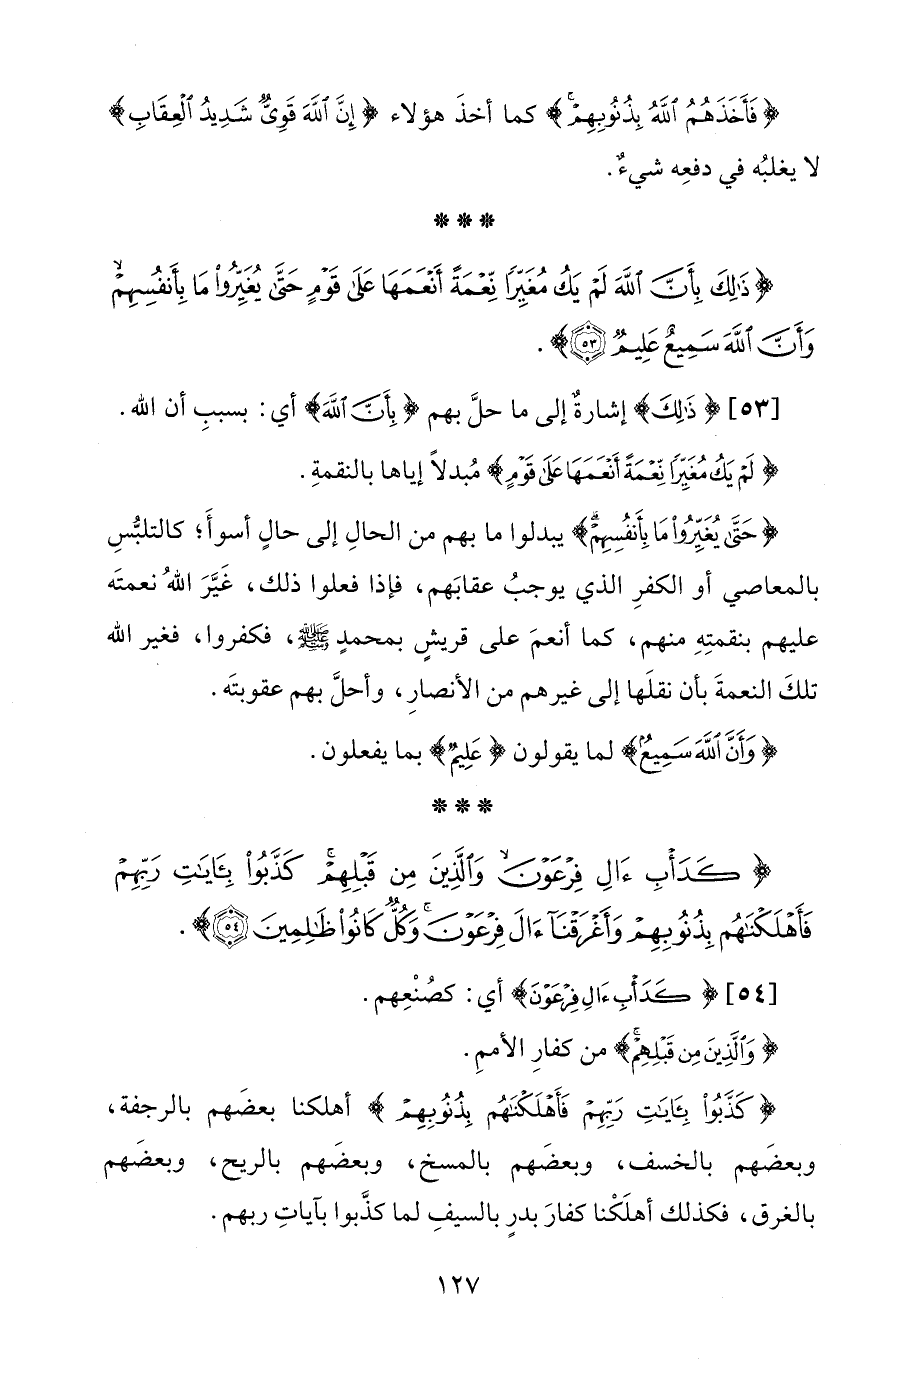 ﴿فَأَخَذَهُمُ ٱللَّهُ بِذُنُوبِهِمْۚ﴾ كما أخذَ هؤلاء ﴿إِنَّ ٱللَّهَ قَوِىٌّ شَدِيدُ ٱلْعِقَابِ﴾
لا يغلبُه في دفعِه شيءٌ.
* * *
﴿ذَٰلِكَ بِأَنَّ ٱللَّهَ لَمْ يَكُ مُغَيِّرًا نِّعْمَةً أَنْعَمَهَا عَلَىٰ قَوْمٍ حَتَّىٰ يُغَيِّرُوا۟ مَا بِأَنفُسِهِمْۙ
وَأَنَّ ٱللَّهَ سَمِيعٌ عَلِيمٌ ۝٥٣﴾.
[٥٣] ﴿ذَٰلِكَ﴾ إشارةٌ إلى ما حلَّ بهم ﴿بِأَنَّ ٱللَّهَ﴾ أي: بسببِ أن الله.
﴿لَمْ يَكُ مُغَيِّرًا نِّعْمَةً أَنْعَمَهَا عَلَىٰ قَوْمٍ﴾ مُبدلاً إياها بالنقمةِ.
﴿حَتَّىٰ يُغَيِّرُوا۟ مَا بِأَنفُسِهِمْۗ﴾ يبدلوا ما بهم من الحالِ إلى حالٍ أسوأَ؛ كالتلبُّسِ
بالمعاصي أو الكفرِ الذي يوجبُ عقابَهم، فإذا فعلوا ذلك، غَيَّرَ اللهُ نعمتَه
عليهم بنقمتِهِ منهم، كما أنعمَ على قريشٍ بمحمدٍ ﷺ، فكفروا، فغير الله
تلكَ النعمةَ بأن نقلَها إلى غيرهم من الأنصارِ، وأحلَّ بهم عقوبتَه.
﴿وَأَنَّ ٱللَّهَ سَمِيعٌ﴾ لما يقولون ﴿عَلِيمٌ﴾ بما يفعلون.
* * *
﴿كَدَأْبِ ءَالِ فِرْعَوْنَۙ وَٱلَّذِينَ مِن قَبْلِهِمْۚ كَذَّبُوا۟ بِـَٔايَٰتِ رَبِّهِمْ
فَأَهْلَكْنَٰهُم بِذُنُوبِهِمْ وَأَغْرَقْنَآ ءَالَ فِرْعَوْنَۚ وَكُلٌّ كَانُوا۟ ظَٰلِمِينَ ۝٥٤﴾.
[٥٤] ﴿كَدَأْبِ ءَالِ فِرْعَوْنَ﴾ أي: كصُنْعِهم.
﴿وَٱلَّذِينَ مِن قَبْلِهِمْۚ﴾ من كفارِ الأممِ.
﴿كَذَّبُوا۟ بِـَٔايَٰتِ رَبِّهِمْ فَأَهْلَكْنَٰهُم بِذُنُوبِهِمْ﴾ أهلكنا بعضَهم بالرجفة،
وبعضَهم بالخسف، وبعضَهم بالمسخ، وبعضَهم بالريح، وبعضَهم
بالغرق، فكذلك أهلَكْنا كفارَ بدرٍ بالسيفِ لما كذَّبوا بآياتِ ربهم.
١٢٧